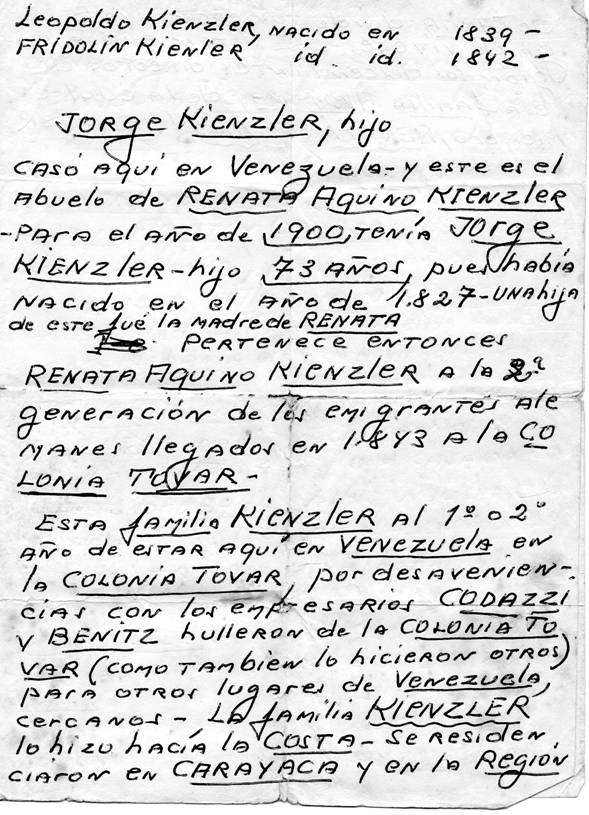 Leopoldo Kienzler, NACIDO EN 1839 -
FRIDOLIN KIENLER id. id. 1842 -
JORGE KIENZLER, hijo
CASÓ AQUÍ EN VENEZUELA - y este es el
Abuelo de RENATA AQUINO KIENZLER
- PARA el AÑO de 1900, TENÍA JORGE
KIENZLER - hijo 73 AÑOS, pues había
NACIDO EN el AÑO de 1.827 - UNA hija
de este fué la MADRE de RENATA
PERTENECE ENTONCES
RENATA AQUINO KIENZLER A la 2ª
generación de los emigrantes Ale
MANES llegados en 1.843 A la CO
LONIA TOVAR -
ESTA familia KIENZLER Al 1º o 2º
AÑO de estar AQUÍ en VENEZUELA en
la COLONIA TOVAR, por desavenien-
cias con los empresarios CODAZZI
y BENITZ hulleron de la COLONIA TO
VAR (como TAMbien lo hicieron OTROS)
para otros lugares de Venezuela,
cercanos - La familia KIENZLER
lo hizo hacía la COSTA - Se residen
ciaron en CARAYACA y en la Región